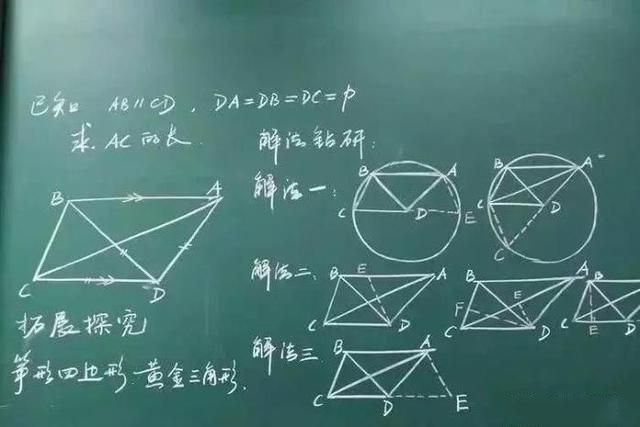 已知 AB∥CD, DA=DB=DC=p
求 AC 的长
解法钻研:
解法一:
B A
C D E
B A
D
C
解法二:
B E A
C D
A
B
F E
C D
B
E
解法三
B A
C D E
B A
C D
拓展探究
筝形四边形 黄金三角形.